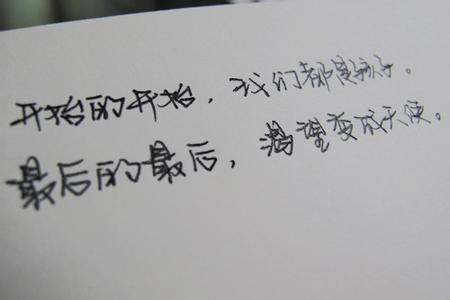 开始的开始，我们都是孩子。
最后的最后，渴望变成天使。